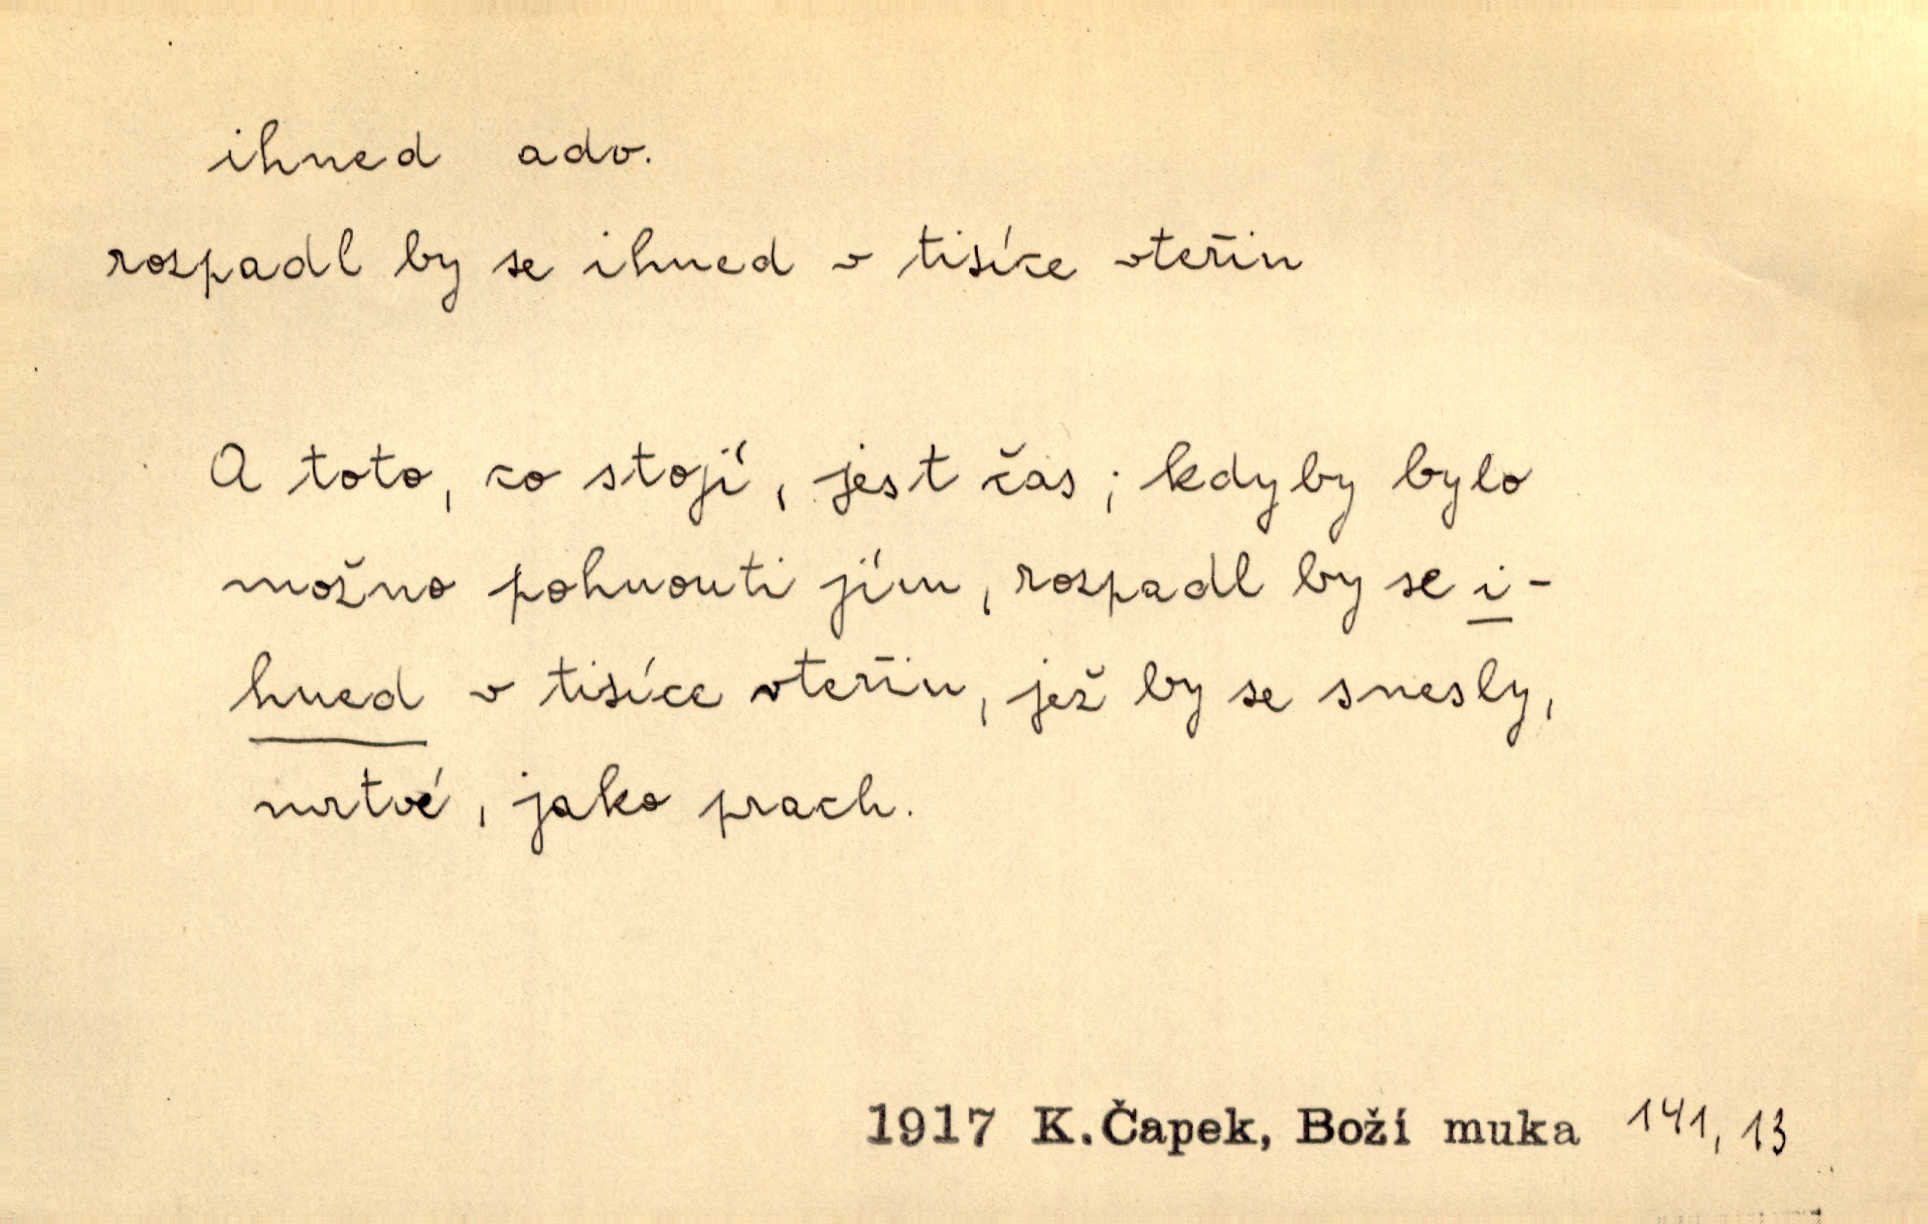 ihned adv.
rozpadl by se ihned v tisíce vteřin
A toto, co stojí, jest čas; kdyby bylo
možno pohnouti jím, rozpadl by se i-
hned v tisíce vteřin, jež by se snesly,
mrtvé, jako prach.
1917 K. Čapek, Boží muka 141, 13